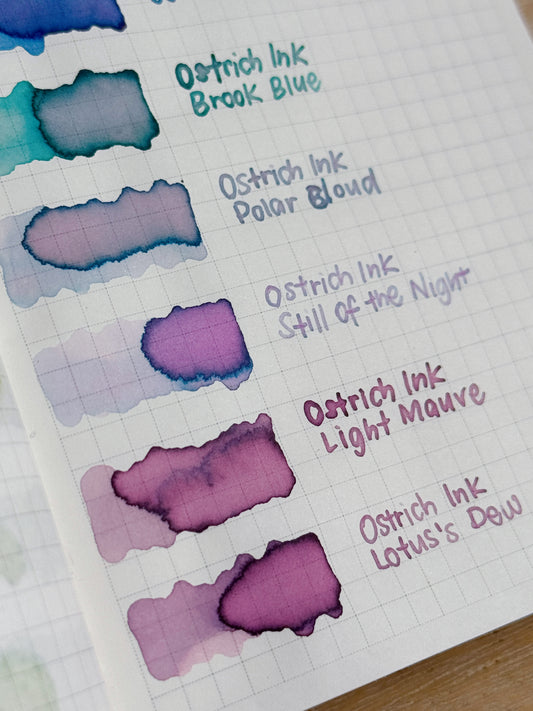 Ostrich Ink
Brook Blue
Ostrich Ink
Polar Bloud
Ostrich Ink
Still Of the Night
Ostrich Ink
Light Mauve
Ostrich Ink
Lotus's Dew